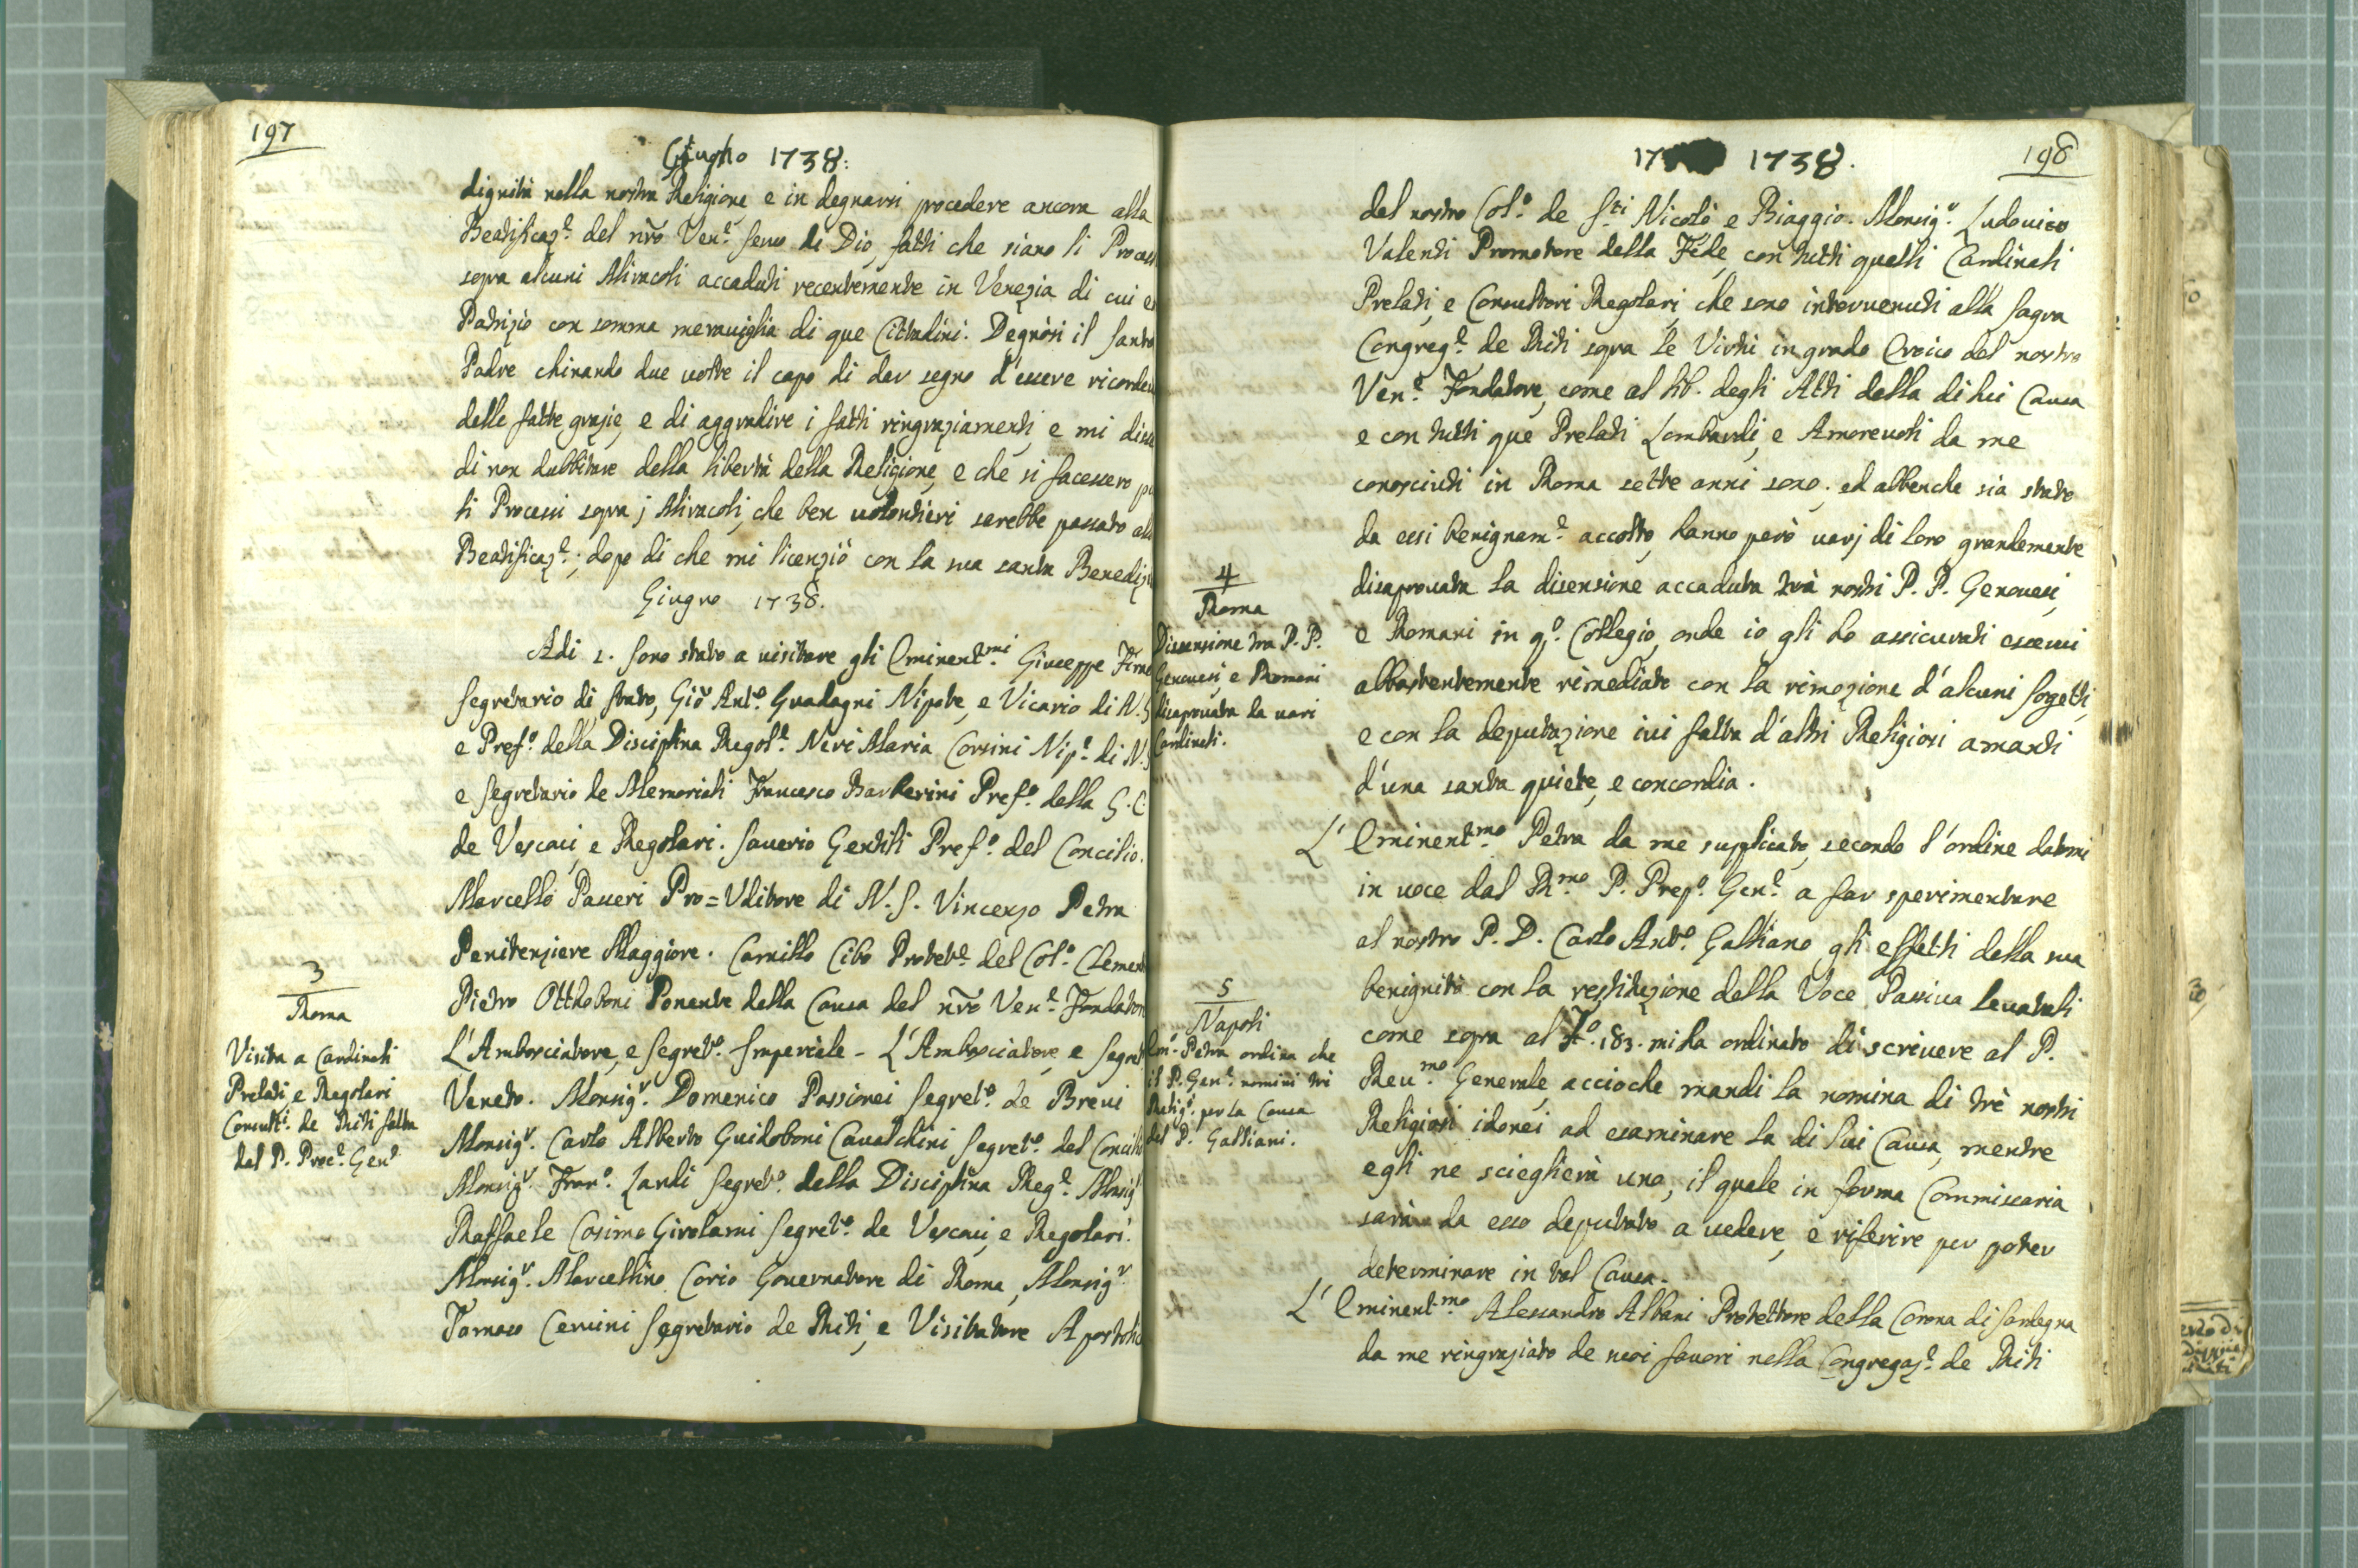 197
Giugno 1738:
dignità nella nostra Religione, e in degnarsi procedere ancora alla
Beatificaz.e del nr̃o Ven.e Servo di Dio, fatti che siano li Process
sopra alcuni Miracoli accaduti recentemente in Venezia di cui e
Patrizio con somma meraviglia di que Cittadini. Degnòsi il Santo
Padre chinando due volte il capo di dar segno d'essere ricorde
delle fatte grazie, e di aggradire i fatti ringraziamenti, e mi disse
di non dubbitare della libertà della Religione, e che si facessero
li Processi sopra j Miracoli, che ben volontieri sarebbe passato all
Beatificaz.e; dopo di che mi licenziò con la sua santa Benediz
Giugno 1738.
Adi 2. sono stato a visitare gli Eminent.mi Giuseppe Firra
Segretario di Stato, Gio Ant.o Guadagni Nipote, e Vicario di N. S
e Pref.o della Disciplina Regol.e Neri Maria Corsini Nip.e di N. S
e Segretario de Memoriali Francesco Barberini Pref.o della S. C.
de Vescovi, e Regolari. Saverio Gentili Pref.o del Concilio.
Marcello Passeri Pro=Vditore di N. S. Vincenzo Petra
Penitenziere Maggiore. Camillo Cibo Protet.e del Col.o Clement
Pietro Otthoboni Ponente della Causa del nr̃o Ven.e Fondator
L'Ambasciatore, e Segret.o Imperiale - L'Ambasciatore, e Segret
Veneto. Monsig.r Domenico Passionei Segret.o de Brevi
Monsig.r Carlo Alberto Guidoboni Cavalchini Segret.o del Concili
Monsig.r Fran.o Zauli Segret.o della Disciplina Reg.e Monsig.r
Raffaele Cosimo Girolami Segret.o de Vescovi, e Regolari.
Monsig.r Marcellino Corio Governatore di Roma, Monsig.r
Tomaso Cervini Segretario de Riti, e Visitatore Apostolic
3
Roma
Visita a Cardinali
Prelati, e Regolari
Consult.i de Riti fatta
dal P. Proc.e Gen.e
17 1738.
198
del nostro Col.o de S.ti Nicolò e Biaggio. Monsig.r Ludovico
Valenti Promotore della Fede, con tutti quelli Cardinali
Prelati, e Consultori Regolari, che sono intervenuti alla Sagra
Congreg.e de Riti sopra le Virtù in grado Eroico del nostro
Ven.e Fondatore, come al lib. degli Atti della di lui Causa
e con tutti que Prelati Lombardi, e Amorevoli da me
conosciuti in Roma sette anni sono; ed abbenche sia stato
da essi benignam.e accolto, hanno però varj di loro grandemente
disaprovata la disensione accaduta trà nostri P. P. Genovesi,
e Romani in q.o Collegio, onde io gli ho assicurati essersi
abbastantemente rimediato con la rimozione d'alcuni Sogetti,
e con la deputazione ivi fatta d'altri Religiosi amanti
d'una santa quiete, e concordia.
L' Eminent.mo Petra da me supplicato, secondo l'ordine datomi
in voce dal R.mo P. Prep.o Gen.e a far sperimentare
al nostro P. D. Carlo Ant.o Galliano gli effetti della sua
benignità con la restituzione della Voce Passiva levatali
come sopra al F.o 183. mi ha ordinato di scrivere al P.
Reu.mo Generale, accioche mandi la nomina di trè nostri
Religiosi idonei ad esaminare la di lui Causa, mentre
egli ne scieglierà uno, il quale in forma Commissaria
sarà da esso deputato a vedere, e riferire per poter
determinare in tal Causa.
L' Eminent.mo Alessandro Albani Protettore della Corona di Sardegna
da me ringraziato de suoi favori nella Congregaz.e de Riti
4
Roma
Dissensione tra P. P.
Genovesi, e Romani
disaprovata da vari
Cardinali.
5
Napoli
Em.o Petra ordina che
il P. Gen.e nomini trè
Relig.i per la Causa
del P. Galliani.